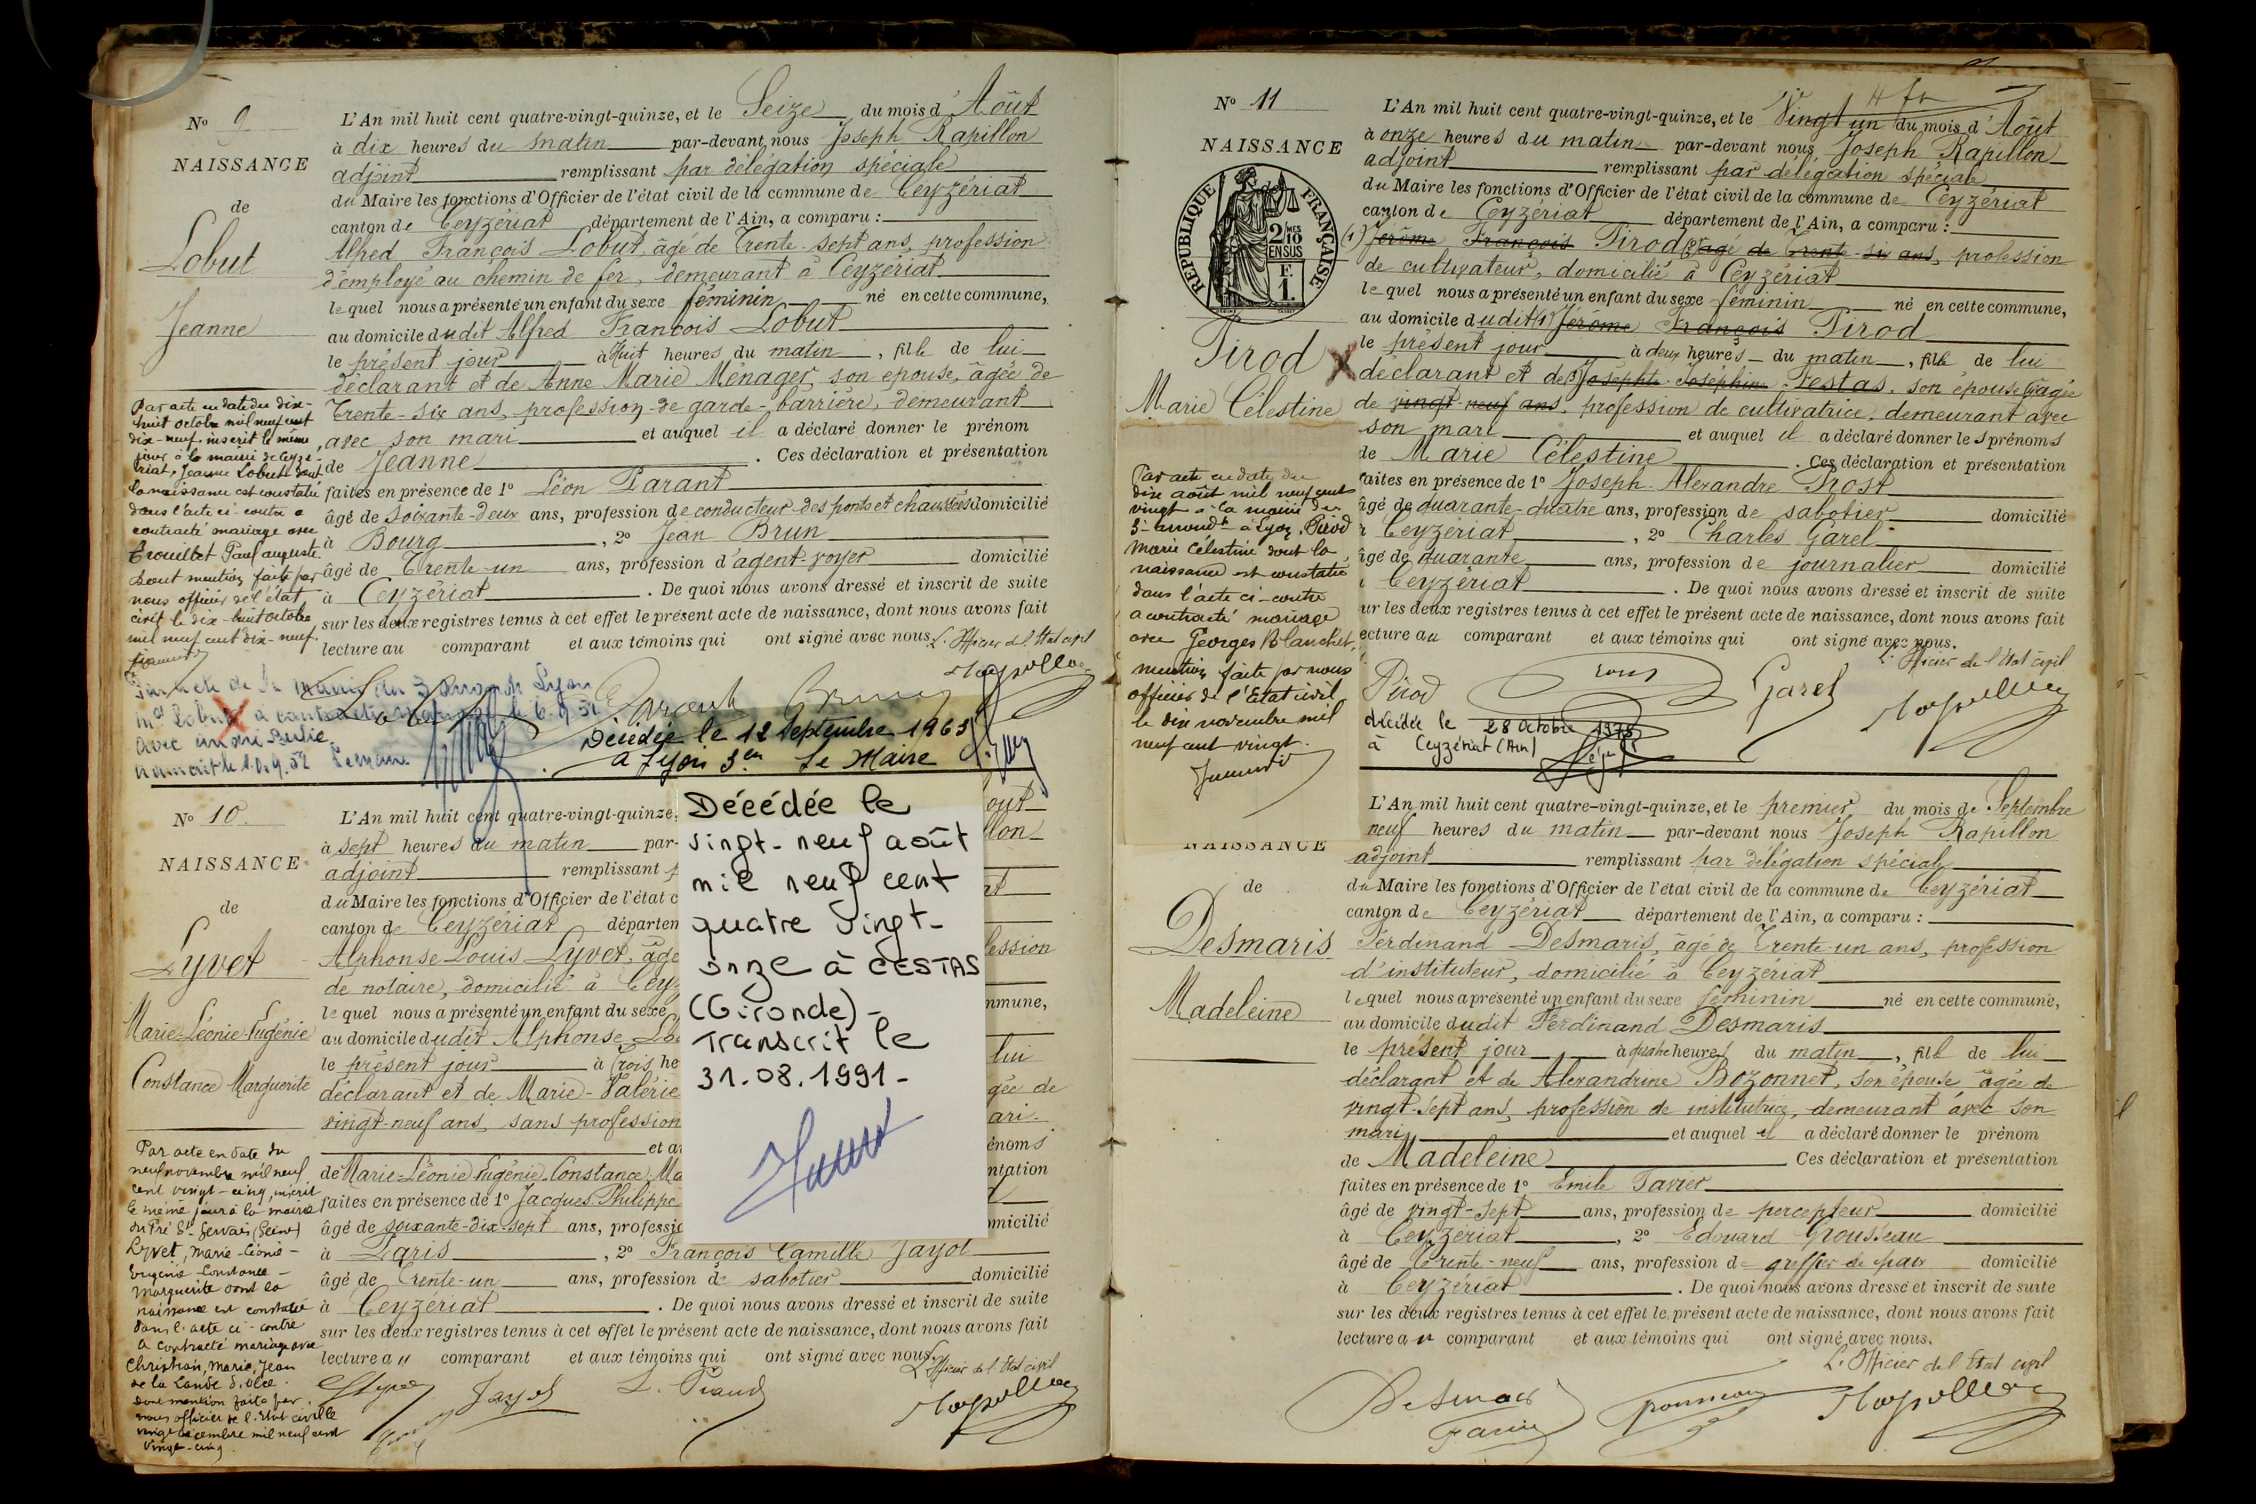 Nº 9
NAISSANCE
de
Lobut
Jeanne
L'An mil huit cent quatre-vingt-quinze, et le Seize du mois d'Août
à dix heures du matin par-devant nous Joseph Rapillon
adjoint remplissant par délégation spéciale
du Maire les fonctions d'Officier de l'état civil de la commune de Ceyzériat
canton de Ceyzériat département de l'Ain, a comparu :
Alfred François Lobut, âgé de Trente-sept ans, profession
d'employé au chemin de fer, demeurant à Ceyzériat
lequel nous a présenté un enfant du sexe féminin né en cette commune,
au domicile dudit Alfred François Lobut
le présent jour à Huit heures du matin, fille de lui
déclarant et de Anne Marie Ménager, son épouse, âgée de
Trente-six ans, profession de garde-barrière, demeurant
avec son mari et auquel il a déclaré donner le prénom
de Jeanne. Ces déclaration et présentation
faites en présence de 1º Léon Parant
âgé de soixante-deux ans, profession de conducteur des ponts et chaussées domicilié
à Bourg, 2º Jean Brun
âgé de Trente-un ans, profession d'agent-voyer domicilié
à Ceyzériat. De quoi nous avons dressé et inscrit de suite
sur les deux registres tenus à cet effet le présent acte de naissance, dont nous avons fait
lecture au comparant et aux témoins qui ont signé avec nous. L'Officier de l'Etat civil
Par acte en date du dix-
huit octobre mil neuf cent
dix-neuf, inscrit le même
jour à la mairie de Ceyzé-
riat, Jeanne Lobut dont
la naissance est constatée
dans l'acte ci-contre a
contracté mariage avec
Trouillet Paul Auguste.
Dont mention faite par
nous officier de l'état
civil le dix-huit octobre
mil neuf cent dix-neuf.
Parant Brun
Décédée le 12 Septembre 1963
à Lyon 3em Le Maire
Nº 10
NAISSANCE
de
Lyvet
Marie-Léonie-Eugénie
Constance Marguerite
L'An mil huit cent quatre-vingt-quinze,
à sept heures du matin par-
adjoint remplissant
du Maire les fonctions d'Officier de l'état c
canton de Ceyzériat départem
Alphonse Louis Lyvet, âgé
de notaire, domicilié à Ceyz
lequel nous a présenté un enfant du sexe
au domicile dudit Alphonse Lo
le présent jour à Trois he
déclarant et de Marie-Valérie
vingt-neuf ans, sans profession
et au
de Marie-Léonie Eugénie Constance Ma
faites en présence de 1º Jacques Philippe
âgé de soixante-dix-sept ans, professio
à Paris, 2º François Camille Jayot
âgé de Trente-un ans, profession de sabotier domicilié
à Ceyzériat. De quoi nous avons dressé et inscrit de suite
sur les deux registres tenus à cet effet le présent acte de naissance, dont nous avons fait
lecture au comparant et aux témoins qui ont signé avec nous.
L'Officier de l'Etat civil
Par acte en date du
neuf novembre mil neuf
cent vingt-cinq, inscrit
le même jour à la mairie
du Pré St Gervais (Seine)
Lyvet, Marie-Léonie-
Eugénie-Constance-
Marguerite dont la
naissance est constatée
dans l'acte ci-contre
a contracté mariage avec
Christian, Marie, Jean
de la Lande
Dont mention faite par
nous officier de l'état civil le
vingt décembre mil neuf cent
vingt-cinq.
Décédée le
vingt-neuf août
mil neuf cent
quatre vingt-
onze à CESTAS
(Gironde)-
Transcrit le
31.08.1991-
Nº 11
NAISSANCE
RÉPUBLIQUE FRANÇAISE
2 MES 10 EN SUS
F. 1.
Tirod
Marie Célestine
L'An mil huit cent quatre-vingt-quinze, et le Vingt un du mois d'Août
à onze heures du matin par-devant nous Joseph Rapillon
adjoint remplissant par délégation spéciale
du Maire les fonctions d'Officier de l'état civil de la commune de Ceyzériat
canton de Ceyzériat département de l'Ain, a comparu :
(1) Jérôme François Tirod âgé de Trente-six ans, profession
de cultivateur, domicilié à Ceyzériat
lequel nous a présenté un enfant du sexe féminin né en cette commune,
au domicile dudit (1) Jérôme François Tirod
le présent jour à deux heures du matin, fille de lui
déclarant et de Josephte Joséphine Festas, son épouse âgée
de vingt-neuf ans, profession de cultivatrice, demeurant avec
son mari et auquel il a déclaré donner les prénoms
de Marie Célestine. Ces déclaration et présentation
faites en présence de 1º Joseph-Alexandre Prost
âgé de quarante-quatre ans, profession de sabotier domicilié
Ceyzériat, 2º Charles Garel
âgé de quarante ans, profession de journalier domicilié
Ceyzériat. De quoi nous avons dressé et inscrit de suite
ur les deux registres tenus à cet effet le présent acte de naissance, dont nous avons fait
lecture au comparant et aux témoins qui ont signé avec nous.
L'Officier de l'Etat civil
Tirod Garel
décédée le 28 Octobre 1975
à Ceyzériat (Ain)
Par acte en date du
dix août mil neuf cent
vingt à la mairie du
3e arrondt à Lyon, Tirod
Marie Célestine dont la
naissance est constatée
dans l'acte ci-contre
a contracté mariage
avec Georges Blanchet,
mention faite par nous
officier de l'Etat civil
le dix novembre mil
neuf cent vingt.
NAISSANCE
de
Desmaris
Madeleine
L'An mil huit cent quatre-vingt-quinze, et le premier du mois de Septembre
neuf heures du matin par-devant nous Joseph Rapillon
adjoint remplissant par délégation spéciale
du Maire les fonctions d'Officier de l'état civil de la commune de Ceyzériat
canton de Ceyzériat département de l'Ain, a comparu :
Ferdinand Desmaris, âgé de Trente-un ans, profession
d'instituteur, domicilié à Ceyzériat
lequel nous a présenté un enfant du sexe féminin né en cette commune,
au domicile dudit Ferdinand Desmaris
le présent jour à quatre heures du matin, fille de lui
déclarant et de Alexandrine Bozonnet, son épouse âgée de
vingt-sept ans, profession de institutrice, demeurant avec son
mari et auquel il a déclaré donner le prénom
de Madeleine Ces déclaration et présentation
faites en présence de 1º Emile Tavier
âgé de vingt-sept ans, profession de percepteur domicilié
à Ceyzériat, 2º Edouard Grousseau
âgé de Trente-neuf ans, profession de greffier de paix domicilié
à Ceyzériat. De quoi nous avons dressé et inscrit de suite
sur les deux registres tenus à cet effet le présent acte de naissance, dont nous avons fait
lecture au comparant et aux témoins qui ont signé avec nous.
L'Officier de l'Etat civil